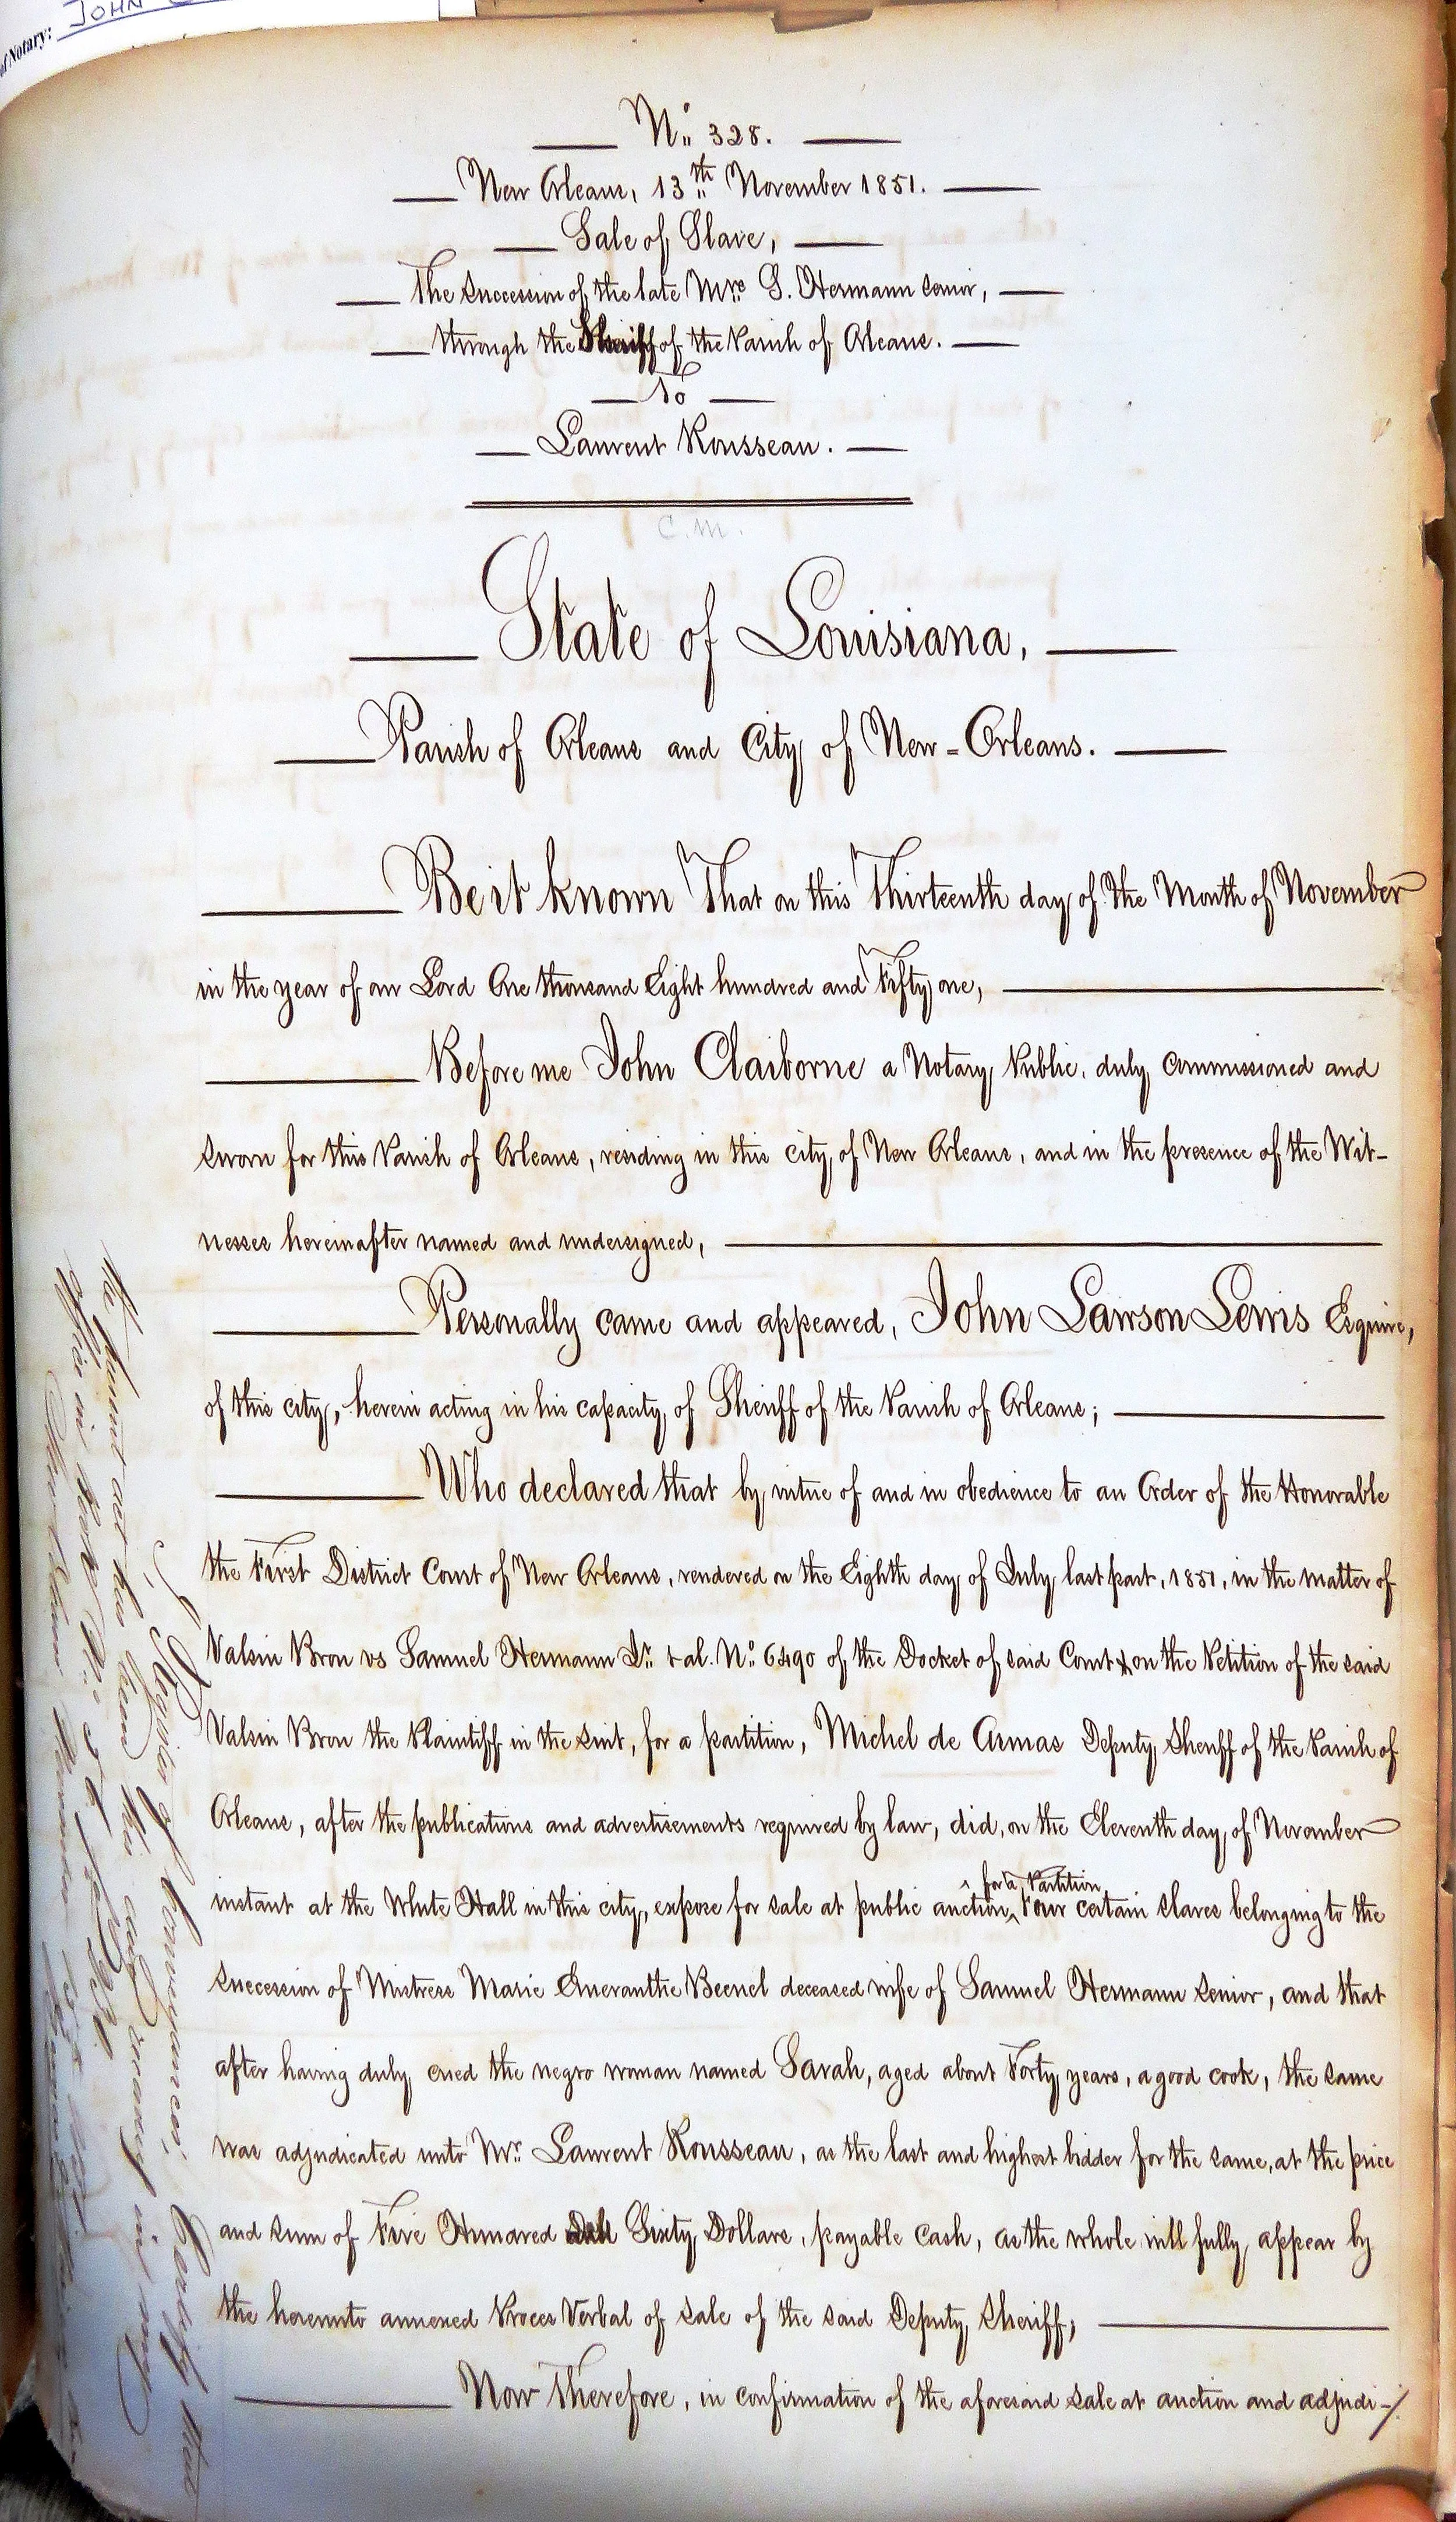 of Notary: JOHN
Nº 328.
New Orleans, 13th November 1851.
Sale of Slave,
The Succession of the late Mrs S. Hermann senior,
through the Sheriff of the Parish of Orleans.
To
Laurent Rousseau.
C.M.
State of Louisiana,
Parish of Orleans and City of New-Orleans.
Be it known That on this Thirteenth day of the Month of November
in the year of our Lord One thousand Eight hundred and Fifty one,
Before me John Claiborne a Notary Public, duly commissioned and
sworn for this Parish of Orleans, residing in this city of New Orleans, and in the presence of the Wit-
nesses hereinafter named and undersigned,
Personally came and appeared, John Lawson Lewis Esquire,
of this city, herein acting in his capacity of Sheriff of the Parish of Orleans;
Who declared that by virtue of and in obedience to an Order of the Honorable
the First District Court of New Orleans, rendered on the Eighth day of July last past, 1851, in the matter of
Valsin Bron vs Samuel Hermann Jr. & al. Nº 6490 of the Docket of said Court & on the Petition of the said
Valsin Bron the Plaintiff in the suit, for a partition, Michel de Armas Deputy Sheriff of the Parish of
Orleans, after the publications and advertisements required by law, did, on the Eleventh day of November
for a Partition
instant at the White Hall in this city, expose for sale at public auction, Four certain slaves belonging to the
succession of Mistress Marie Emeranthe Becnel deceased wife of Samuel Hermann senior, and that
after having duly cried the negro woman named Sarah, aged about Forty years, a good cook, the same
was adjudicated unto Mr. Laurent Rousseau, as the last and highest bidder for the same, at the price
and sum of Five Hundred Sixty Dollars, payable cash, as the whole will fully appear by
the hereunto annexed Proces Verbal of sale of the said Deputy Sheriff;
Now Therefore, in confirmation of the aforesaid sale at auction and adjudi-/
I, Register of Conveyances, Certify that
the present act has been this day in my
office in book
New Orleans